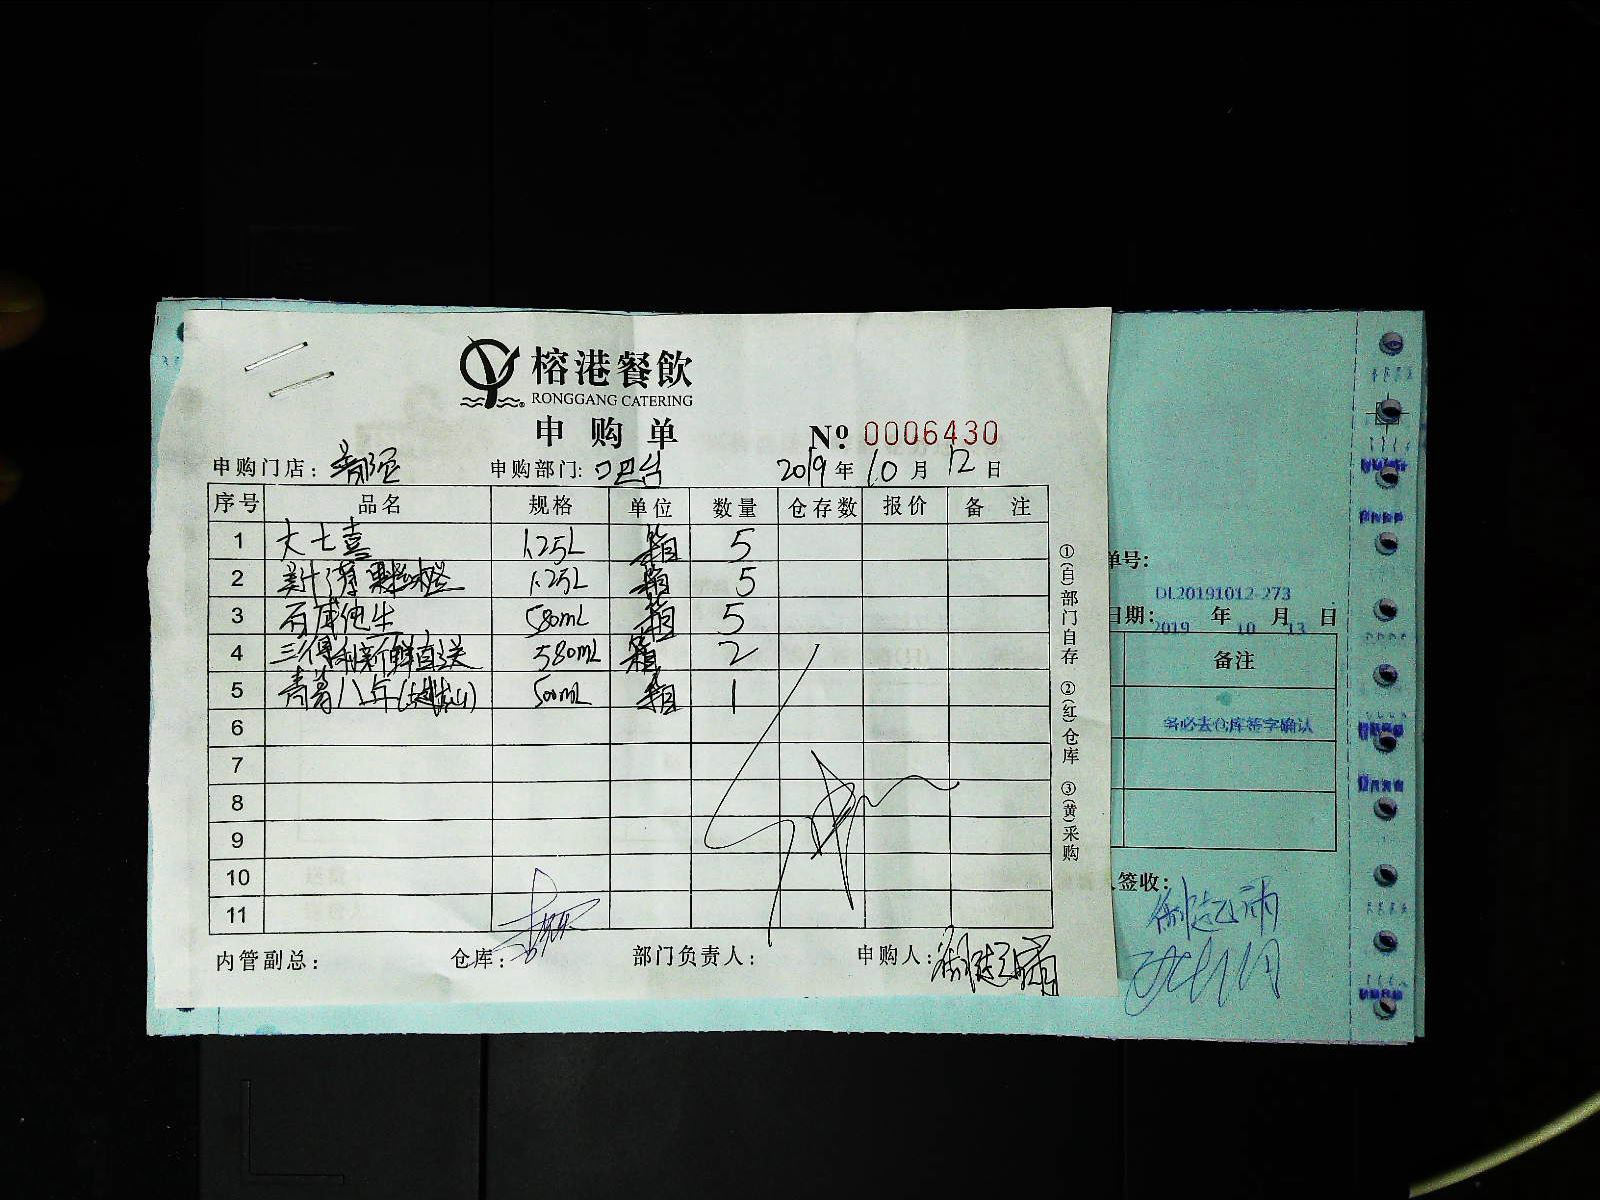 榕港餐飲
RONGGANG CATERING
申购单
№ 0006430
申购门店： 申购部门: 吧台 2019年10月12日
序号 品名 规格 单位 数量 仓存数 报价 备注
1 大七喜 1.25L 箱 5
2 美汁源果粒橙 1.25L 箱 5
3 百威纯生 580mL 箱 5
4 三得利新鲜直送 580mL 箱 2
5 青岛八年() 500mL 箱 1
6
7
8
9
10
11
内管副总： 仓库： 部门负责人： 申购人：
①(白)部门自存 ②(红)仓库 ③(黄)采购
单号：
DL20191012-273
日期： 2019 年 10 月 13 日
备注
务必去仓库签字确认
人签收：